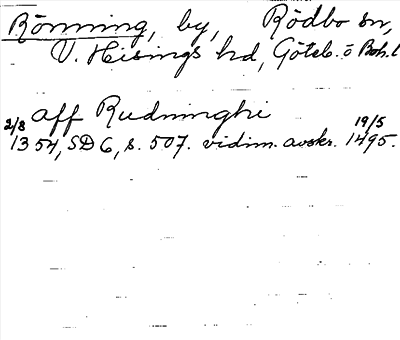 Rönning, by, Rödbo sn,
V. Hisings hd, Göteb. o Boh. l
aff Rudninghi
2/8 1354, SD 6, s. 507. vidim. avskr. 19/5 1495.